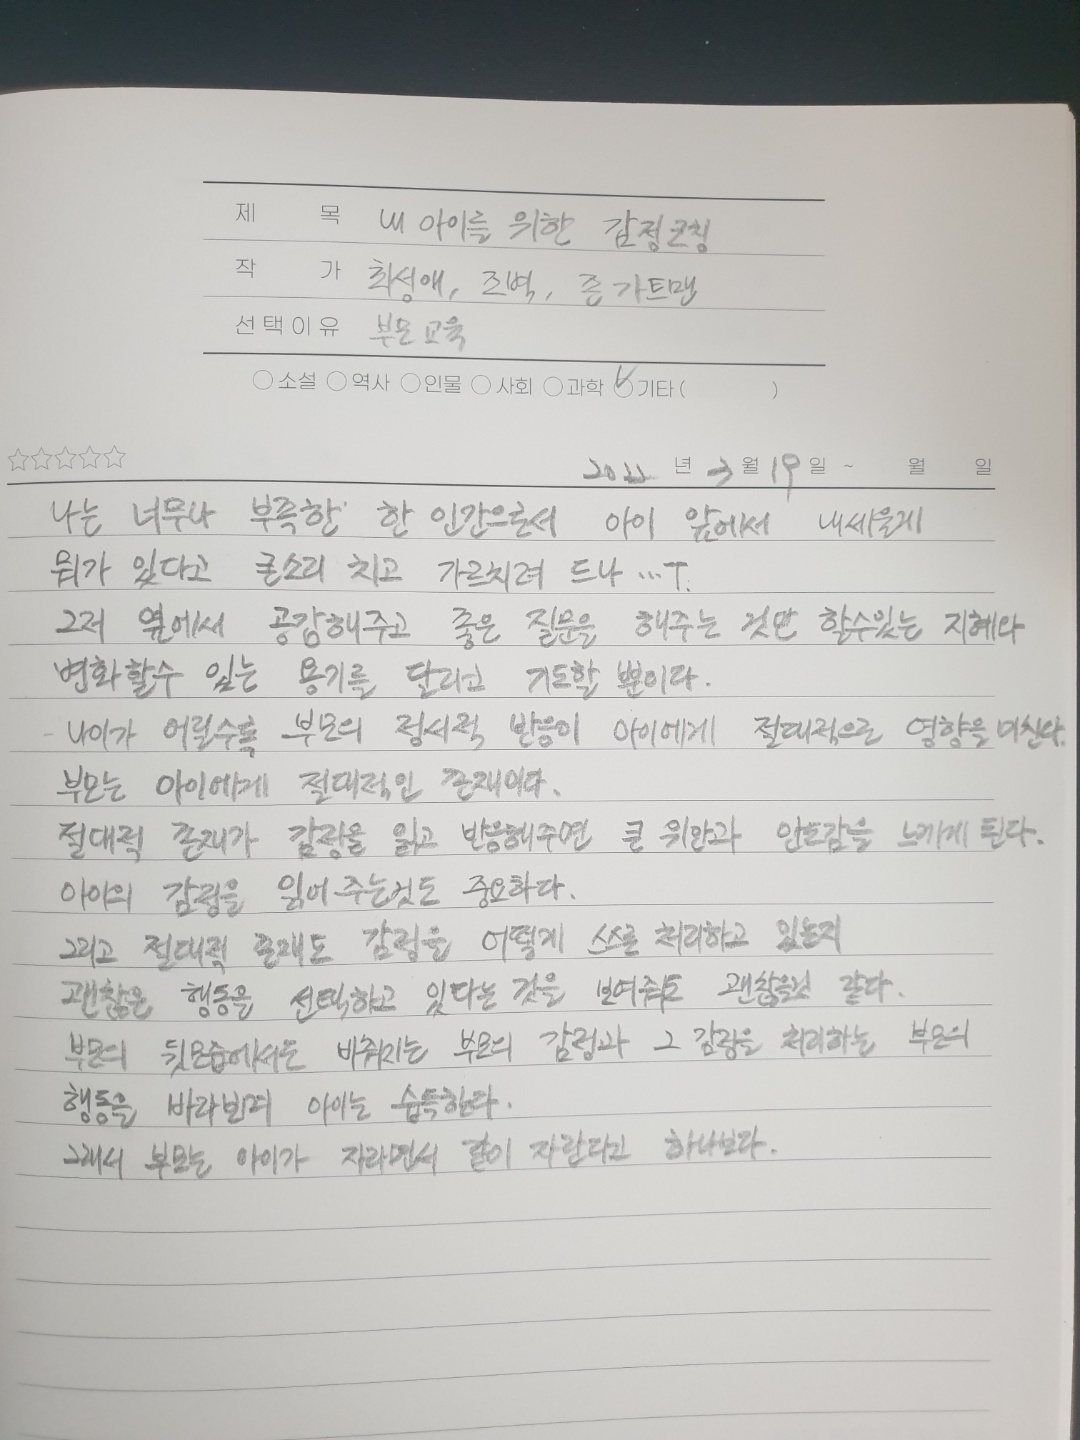 제 목 내 아이를 위한 감정코칭
작 가 최성애, 조벽, 존 가트맨
선택이유 부모교육
소설 역사 인물 사회 과학 기타( )
2022 년 3 월 19 일 ~ 월 일
나는 너무나 부족한 한 인간으로서 아이 앞에서 내세울게
뭐가 있다고 큰소리 치고 가르치려 드나 …T.
그저 옆에서 공감해주고 좋은 질문을 해주는 것만 할수있는 지혜와
변화할수 있는 용기를 달라고 기도할 뿐이다.
- 나이가 어릴수록 부모의 정서적 반응이 아이에게 절대적으로 영향을 미친다.
부모는 아이에게 절대적인 존재이다.
절대적 존재가 감정을 읽고 반응해주면 큰 위안과 안도감을 느끼게 된다.
아이의 감정을 읽어 주는것도 중요하다.
그리고 절대적 존재도 감정을 어떻게 스스로 처리하고 있는지
괜찮은 행동을 선택하고 있다는 것을 보여줘도 괜찮을것 같다.
부모의 뒷모습에서도 비춰지는 부모의 감정과 그 감정을 처리하는 부모의
행동을 바라보며 아이는 습득한다.
그래서 부모는 아이가 자라면서 같이 자란다고 하나보다.